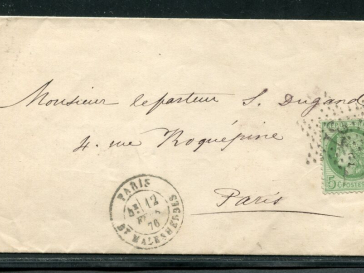 Monsieur le pasteur S. Dugand
4. rue Roquépine
Paris
PARIS
12
76
Bd MALESHERBES
5 C POSTES